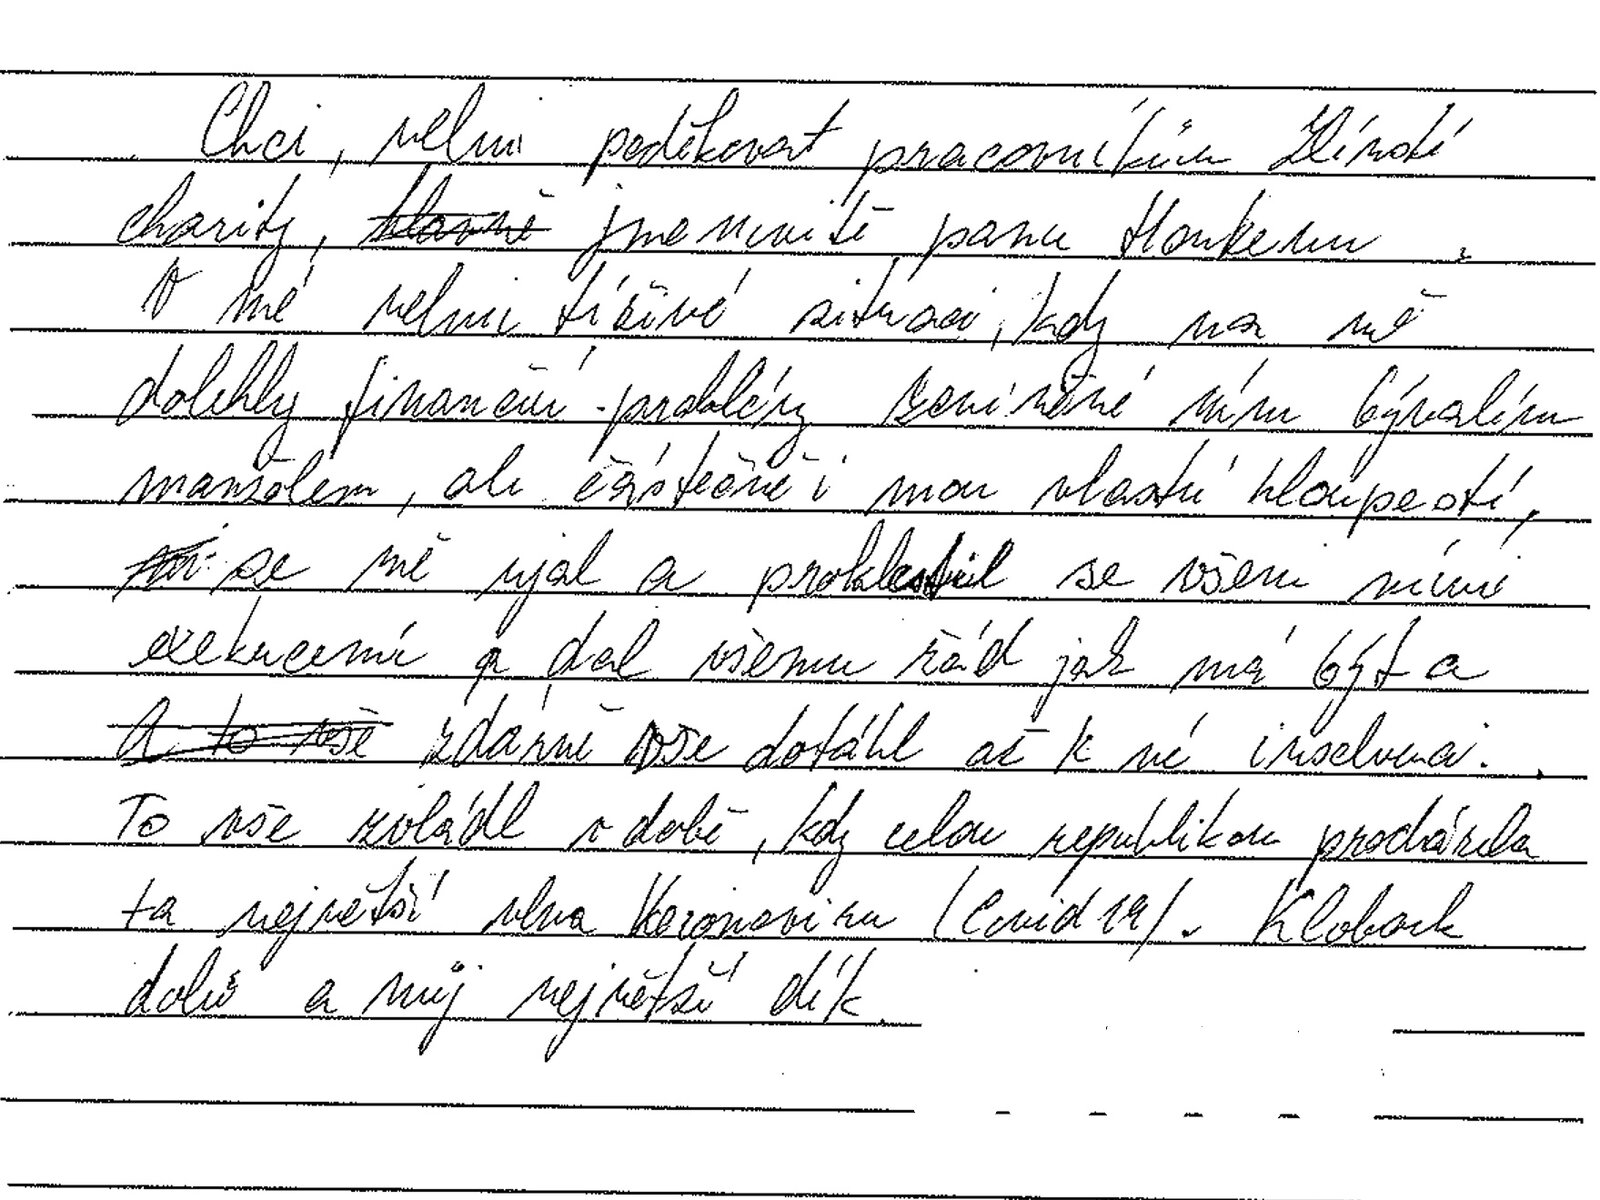 Chci, velmi poděkovat pracovníkům Zlínské
charity, hlavně jmenovitě panu Hankemu.
V mé velmi tíživé situaci, kdy na mě
dolehly finanční problémy zaviněné mým bývalím
manželem, ale částečně i mou vlastní hloupostí,
se mě ujal a proklestil se všemi mími
exekucemi a dal všemu řád jak má být a
A to vše zdárně vše dotáhl až k mé insolvenci.
To vše zvládl v době, kdy celou republikou procházela
ta největší vlna Koronaviru (Covid 19). Klobouk
dolů a můj největší dík.